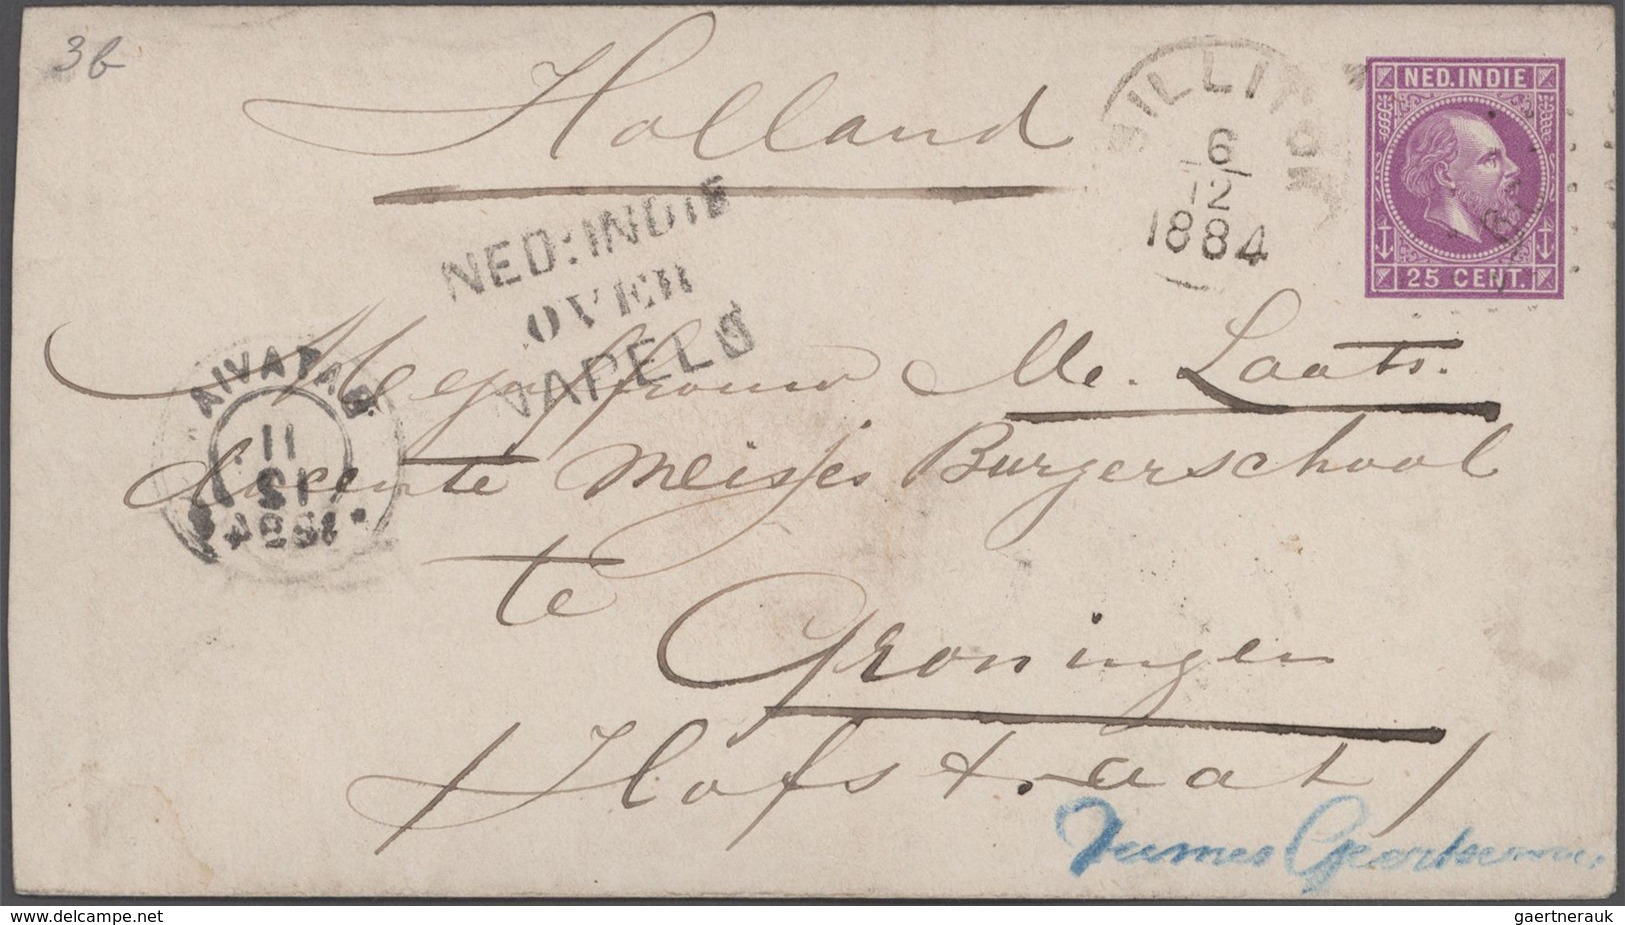 3b
Holland
BILLITON
6
12
1884
NED. INDIE
25 CENT.
NED: INDIE
OVER
NAPELS
Mejufrouw Me. Laats.
docente Meisjes Burgerschool
te
Groningen
/ Hofstraat /
BATAVIA
11
12
1884
gaertnerauk